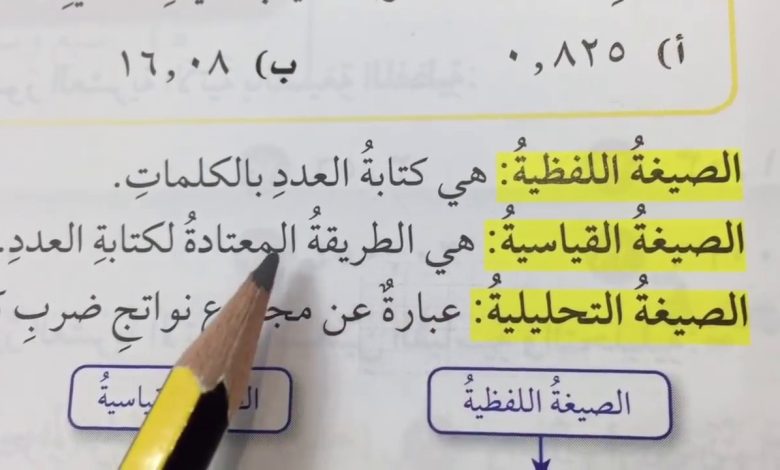 أ) ٠,٨٢٥ ب) ١٦,٠٨
الصيغةُ اللفظيةُ: هي كتابةُ العددِ بالكلماتِ.
الصيغةُ القياسيةُ: هي الطريقةُ المعتادةُ لكتابةِ العددِ.
الصيغةُ التحليليةُ: عبارةٌ عن نواتجِ ضربِ
الصيغةُ اللفظيةُ